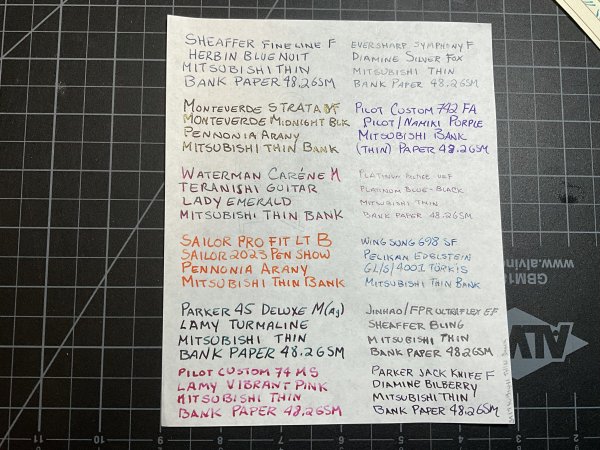 SHEAFFER FINE LINE F
HERBIN BLUE NUIT
MITSUBISHI THIN
BANK PAPER 48.2GSM
EVERSHARP SYMPHONY F
DIAMINE SILVER FOX
MITSUBISHI THIN
BANK PAPER 48.2GSM
MONTEVERDE STRATA F
MONTEVERDE MIDNIGHT BLK
PENNONIA ARANY
MITSUBISHI THIN BANK
PILOT CUSTOM 742 FA
PILOT/NAMIKI PURPLE
MITSUBISHI BANK
(THIN) PAPER 48.2GSM
WATERMAN CARÉNE M
TERANISHI GUITAR
LADY EMERALD
MITSUBISHI THIN BANK
PLATINUM UEF
PLATINUM BLUE-BLACK
MITSUBISHI THIN
BANK PAPER 48.2GSM
SAILOR PRO FIT LT B
SAILOR 2023 PEN SHOW
PENNONIA ARANY
MITSUBISHI THIN BANK
WING SUNG 698 SF
PELIKAN EDELSTEIN
4001 TÜRKIS
MITSUBISHI THIN BANK
PARKER 45 DELUXE M(Ag)
LAMY TURMALINE
MITSUBISHI THIN
BANK PAPER 48.2GSM
JINHAO/FPR ULTRAFLEX EF
SHEAFFER BLING
MITSUBISHI THIN
BANK PAPER 48.2GSM
PILOT CUSTOM 74 MS
LAMY VIBRANT PINK
MITSUBISHI THIN
BANK PAPER 48.2GSM
PARKER JACK KNIFE F
DIAMINE BILBERRY
MITSUBISHI THIN
BANK PAPER 48.2GSM
MITSUBISHI
GBM18
www.alvin
ALV
11 10 9 8 7 6 5 4 3 2